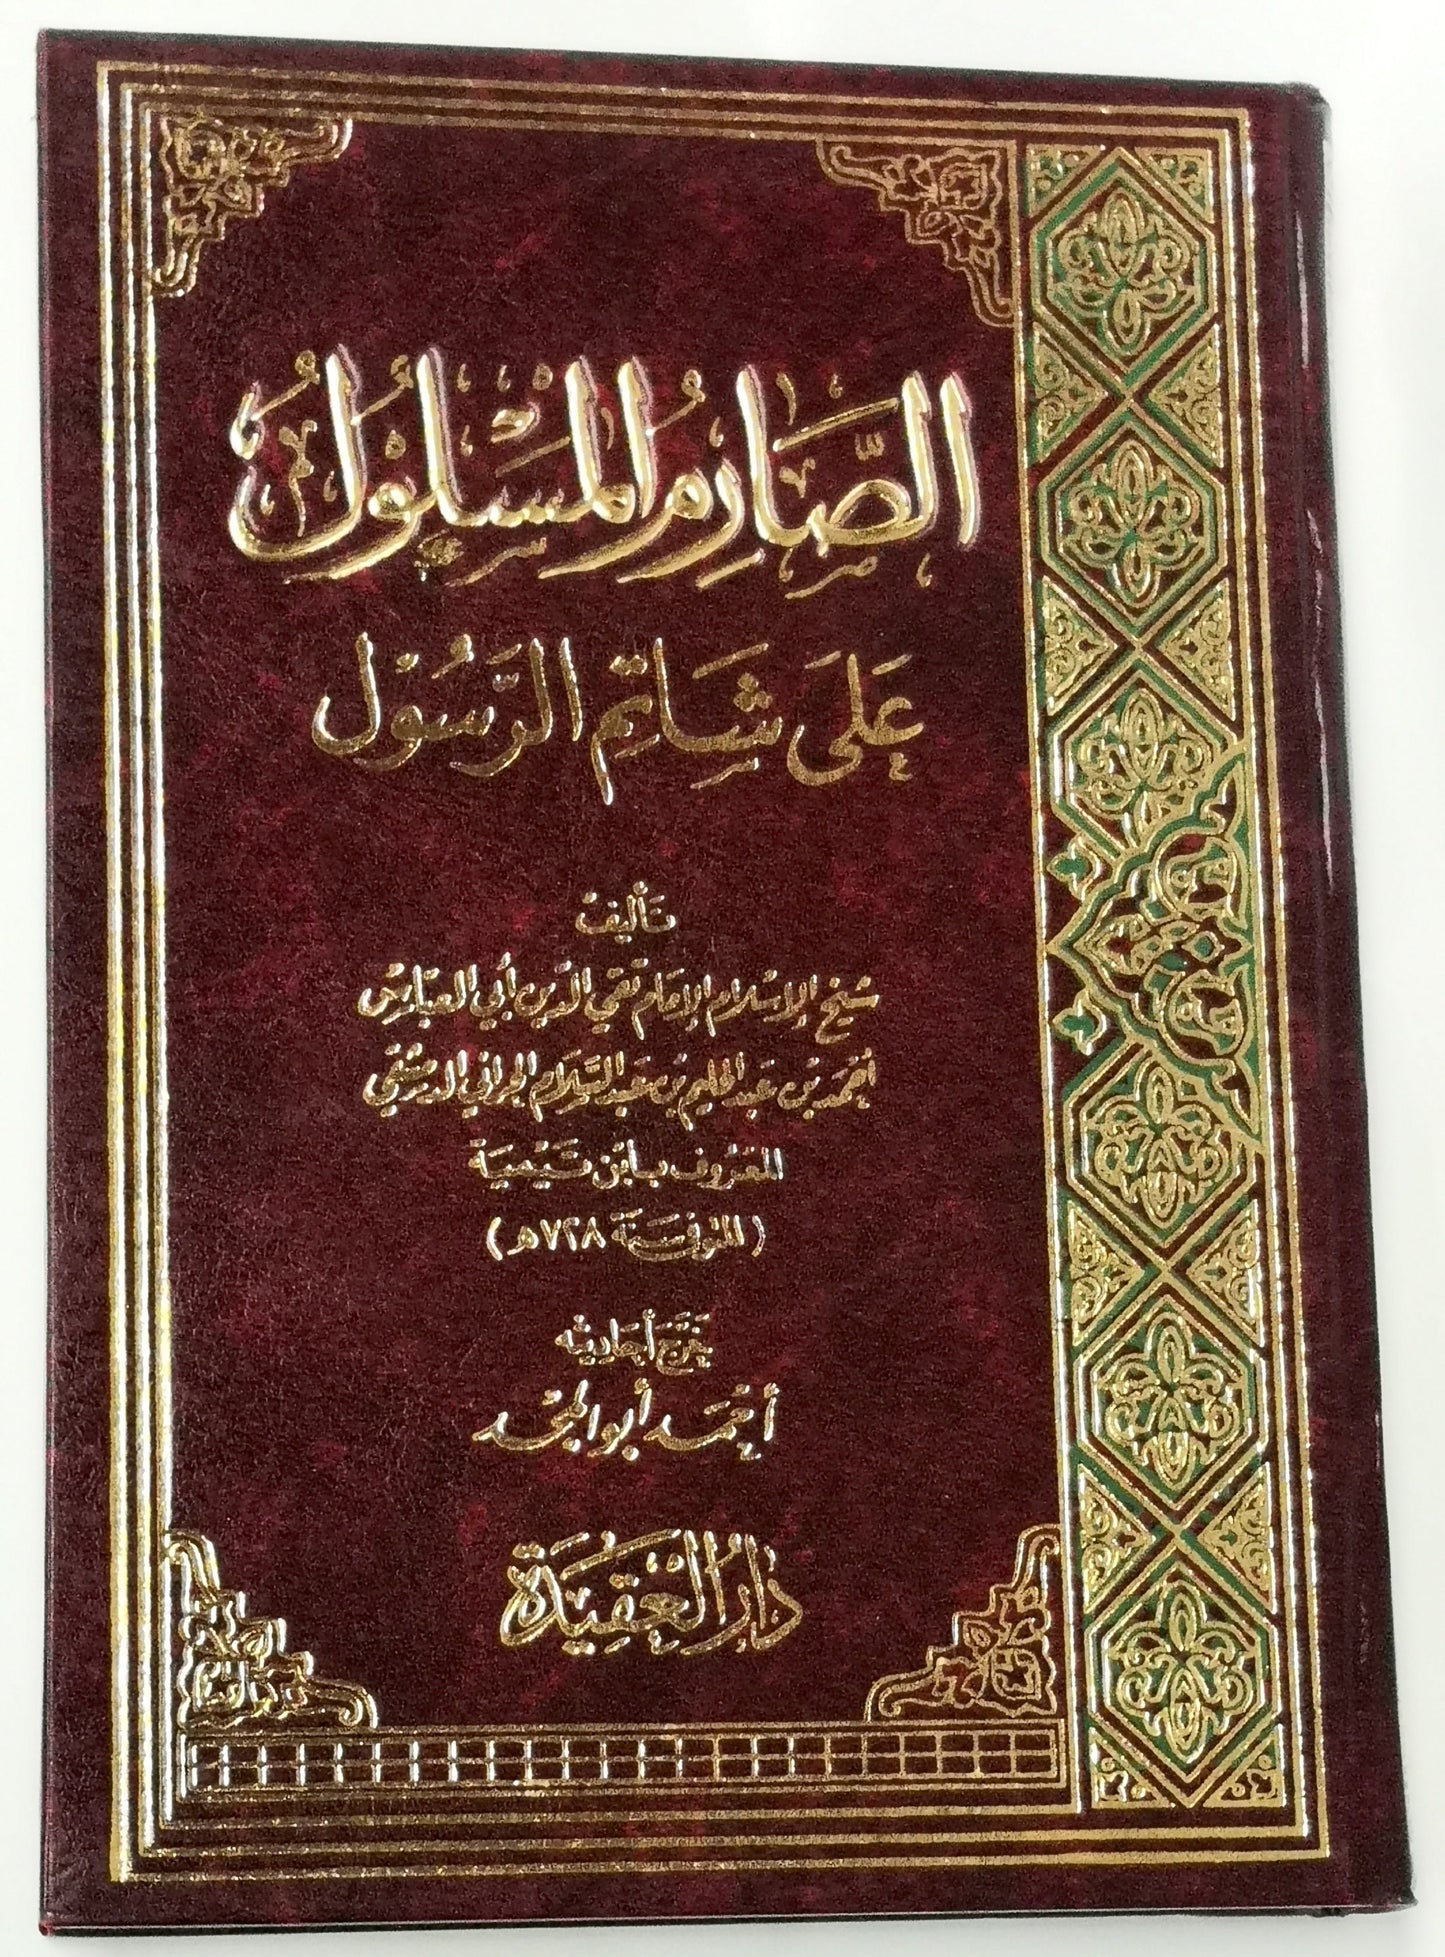 الصَّارِمُ المَسْلُولُ
عَلَى شَاتِمِ الرَّسُول
تأليف
شيخ الإسلام الإمام تقي الدين أبي العباس
أحمد بن عبد الحليم بن عبد السلام الحراني الدمشقي
المعروف بابن تيمية
(المتوفى سنة ٧٢٨هـ)
خرج أحاديثه
أحمد أبو المجد
دَارُ العَقِيدَة